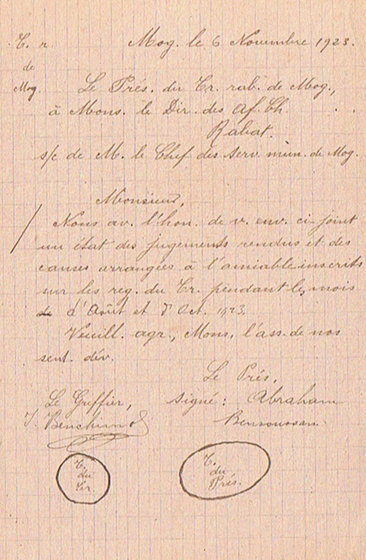 T. r. Mog. le 6 Novembre 1923.
de
Mog. Le Prés. du Tr. rab. de Mog.,
à Mons. le Dir. des Af. Ch.
Rabat.
s/c de M. le Chef des Serv. mun. de Mog.
Monsieur,
Nous av. l'hon. de v. env. ci-joint
un état des jugements rendus et des
causes arrangées à l'amiable inscrits
sur les reg. du Tr. pendant les mois
d'Août et d'Oct. 1923.
Veuill. agr., Mons, l'ass. de nos
sent. dév.
Le Prés,
Le Greffier, signé: Abraham
J. Benchimol Bensoussan
T.
du
Gr.
T.
du
Prés.